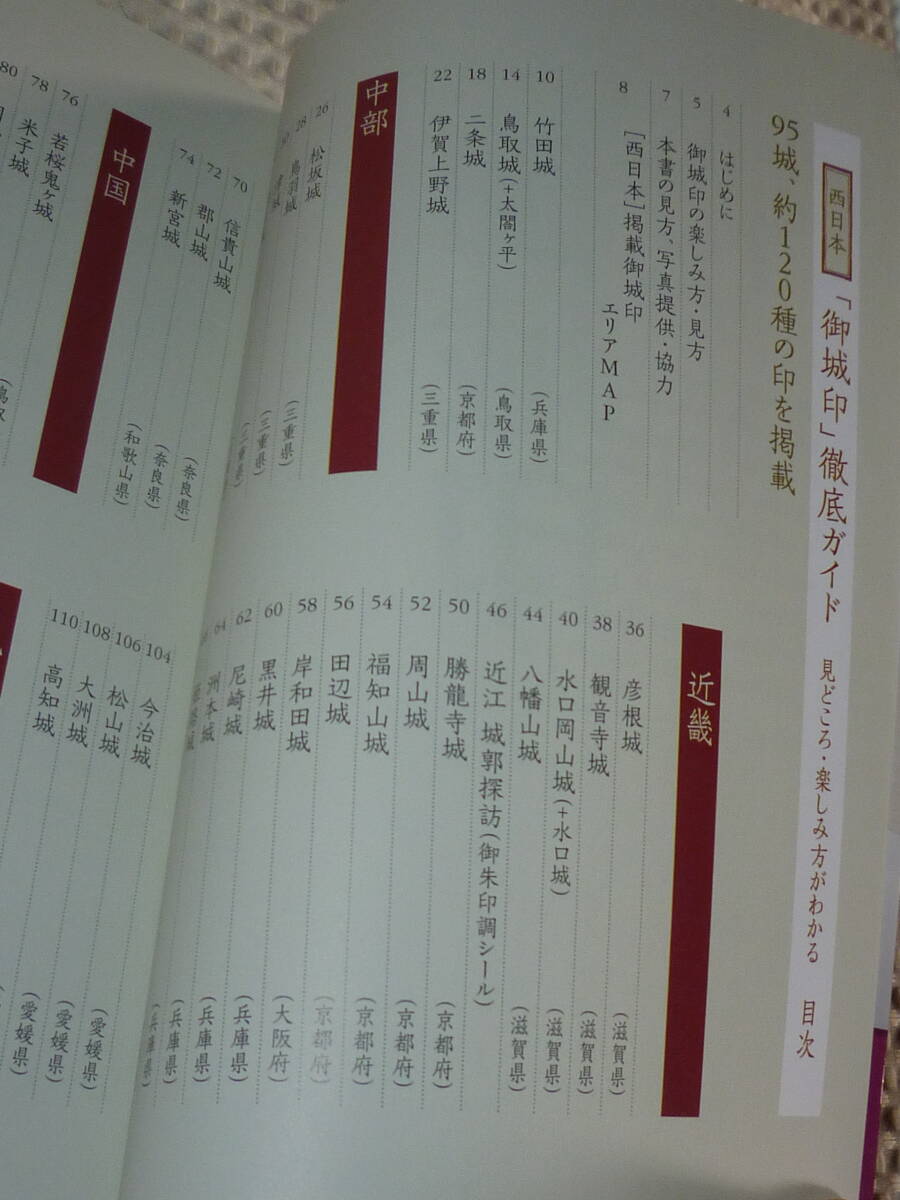 西日本
「御城印」徹底ガイド 見どころ・楽しみ方がわかる 目次
95城、約120種の印を掲載
4 はじめに
5 御城印の楽しみ方・見方
7 本書の見方、写真提供・協力
8 [西日本]掲載御城印
エリアMAP
10 竹田城 (兵庫県)
14 鳥取城(+太閤ヶ平) (鳥取県)
18 二条城 (京都府)
22 伊賀上野城 (三重県)
中部
26 松坂城 (三重県)
28 鳥羽城 (三重県)
(三重県)
近畿
36 彦根城 (滋賀県)
38 観音寺城 (滋賀県)
40 水口岡山城(+水口城) (滋賀県)
44 八幡山城 (滋賀県)
46 近江 城郭探訪(御朱印調シール)
50 勝龍寺城 (京都府)
52 周山城 (京都府)
54 福知山城 (京都府)
56 田辺城 (京都府)
58 岸和田城 (大阪府)
60 黒井城 (兵庫県)
62 尼崎城 (兵庫県)
64 洲本城 (兵庫県)
(兵庫県)
70 信貴山城 (奈良県)
72 郡山城 (奈良県)
74 新宮城 (和歌山県)
中国
76 若桜鬼ヶ城
78 米子城
80
104 今治城 (愛媛県)
106 松山城 (愛媛県)
108 大洲城 (愛媛県)
110 高知城